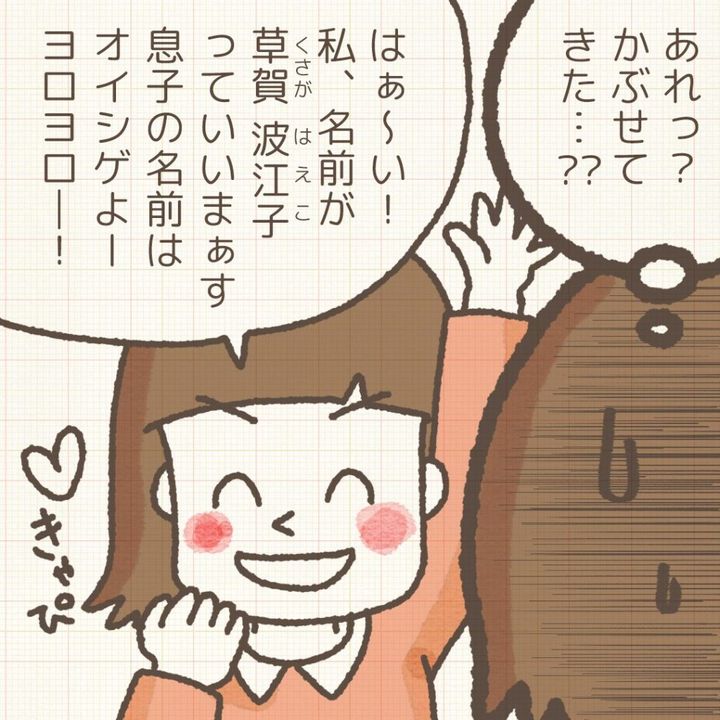 あれっ?
かぶせて
きた…??
はぁ〜い!
私、名前が
草賀 波江子
くさが はえこ
っていいまぁす
息子の名前は
オイシゲよー
ヨロヨロー!
きゃぴ